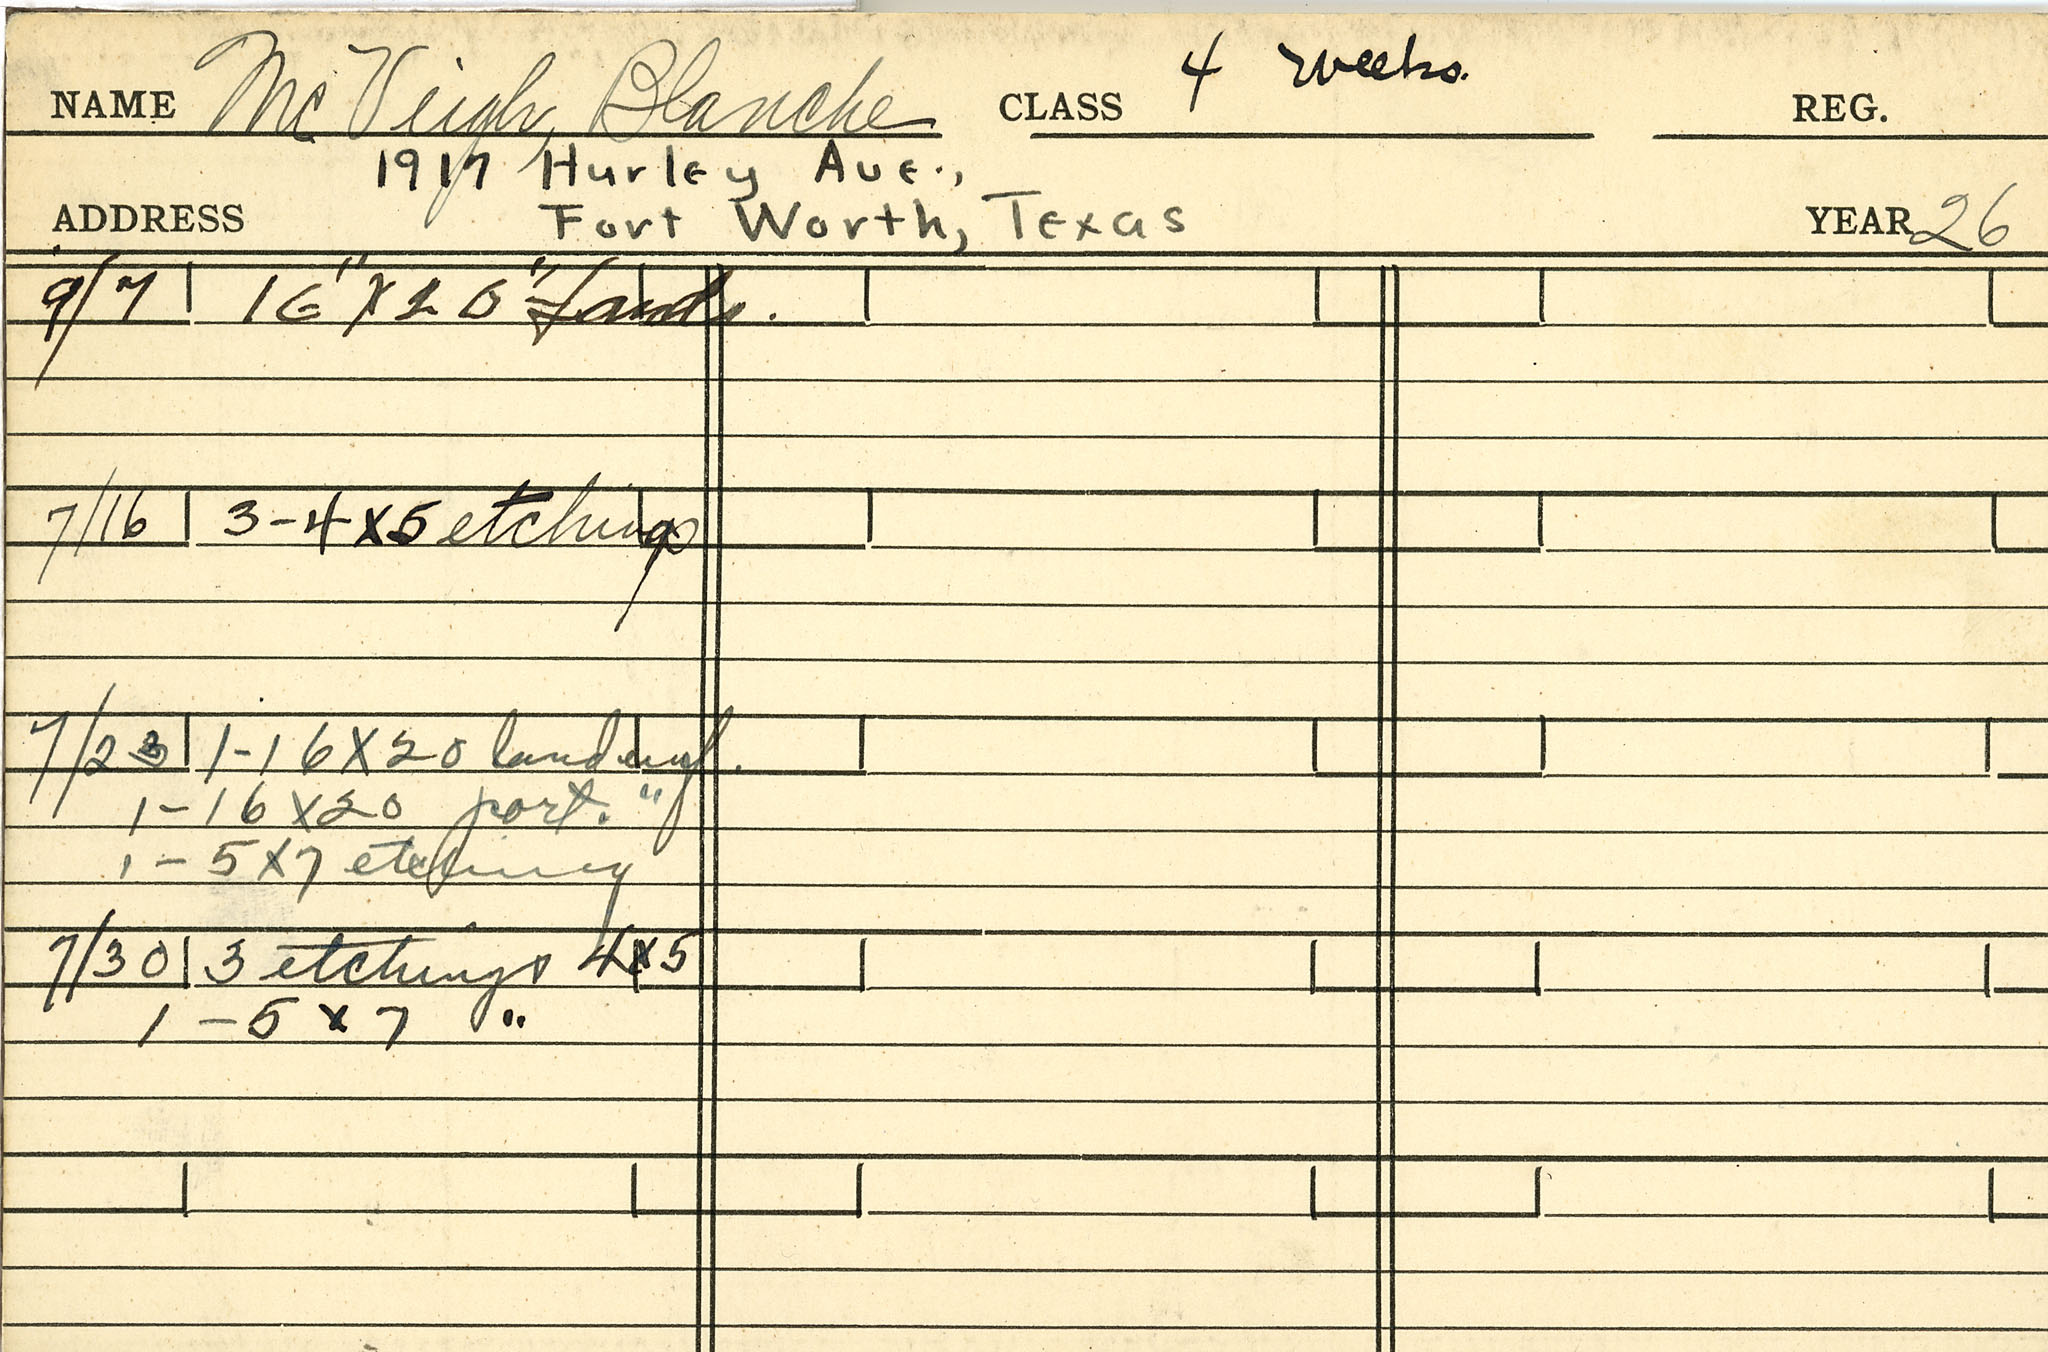 NAME McVeigh, Blanche CLASS 4 Weeks. REG.
1917 Hurley Ave.,
ADDRESS Fort Worth, Texas YEAR 26
9/7 16" X 20" Lands.
7/16 3-4 X 5 etchings
7/23 1-16 X 20
1-16 X 20 port. "
1-5 X 7 etching
7/30 3 etchings 4 X 5
1-5 X 7 "